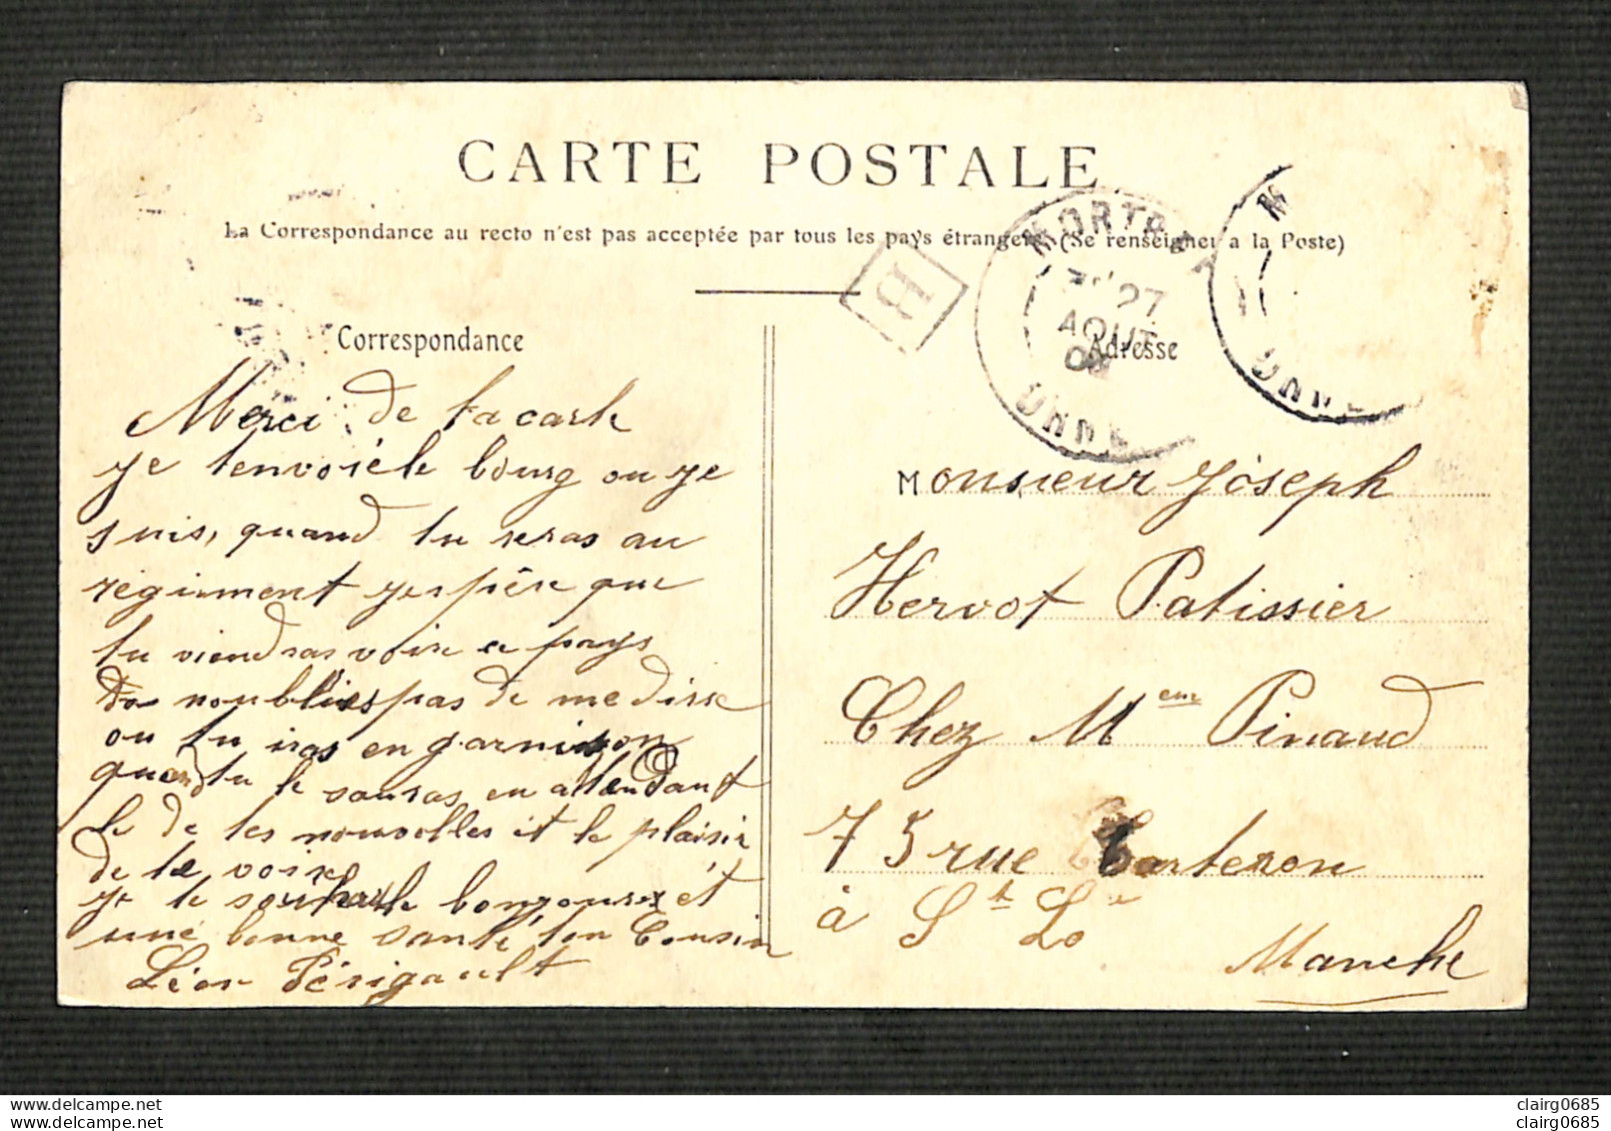 CARTE POSTALE
La Correspondance au recto n'est pas acceptée par tous les pays étrangers. (Se renseigner a la Poste)
MORTA
27
AOUT
B
Correspondance
Merci de ta carte
je tenvoie le bourg ou je
suis, quand tu seras au
régiment jespère que
tu viendras voire ce pays
noublies pas de me dire
ou tu iras en garnison
quand tu le sauras en attendant
le de tes nouvelles et le plaisir
de te voire
je te souhaite bonjours et
une bonne santé ton Cousin
Léon Périgault
Adresse
Monsieur Jóseph
Hervot Patissier
Chez Meme Pinaud
75 rue Torteron
à St Lo
Manche
clairg0685
clairg0685
clairg0685
clairg0685